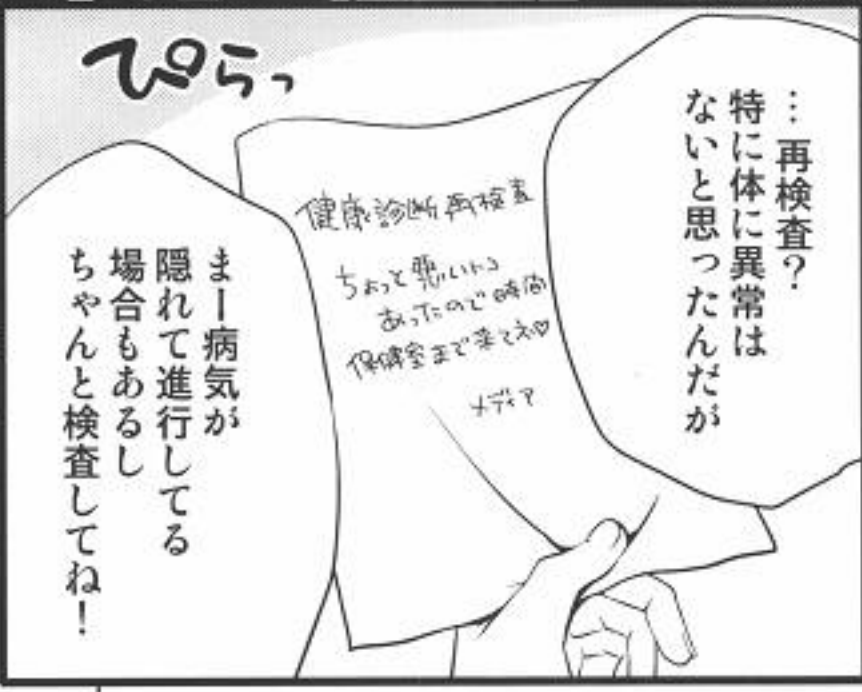 …再検査？
特に体に異常は
ないと思ったんだが
ぴらっ
健康診断再検査
ちょっと悪いトコ
あったので時間
保健室まで来てネ♡
メディア
まー病気が
隠れて進行してる
場合もあるし
ちゃんと検査してね！